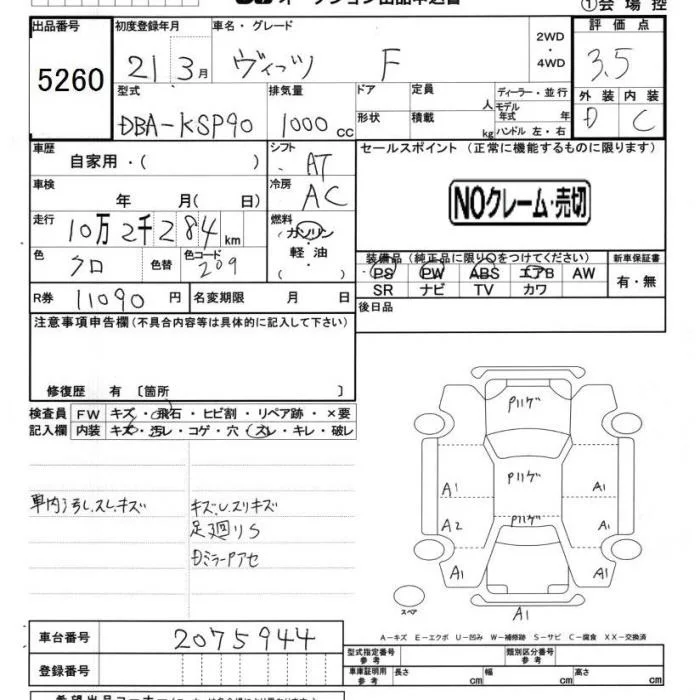 ①会場控
出品番号 初度登録年月 車名・グレード 2WD ・ 4WD 評価点
5260 21年 3月 ヴィッツ F 3.5
型式 排気量 ドア 定員 人 ディーラー・並行 外装 内装
DBA-KSP90 1000cc 形状 積載 kg モデル年式 年 D C
ハンドル 左・右
車歴 自家用・( ) シフト AT セールスポイント (正常に機能するものに限ります)
車検 年 月( 日) 冷房 AC NOクレーム・売切
走行 10万2千284km 燃料 ガソリン・軽油・( )
色 クロ 色替 色コード 209 装備品(純正品に限り○をつけてください) 新車保証書
PS PW ABS エアB AW 有・無
R券 11090円 名変期限 月 日 SR ナビ TV カワ
注意事項申告欄(不具合内容等は具体的に記入して下さい) 後日品
修復歴 有 〔箇所 〕
検査員 FW キズ・飛石・ヒビ割・リペア跡・×要
記入欄 内装 キズ・汚レ・コゲ・穴・スレ・キレ・破レ
車内汚レ.スレ.キズ キズ.U.スリキズ
足廻りS
DミラーPアセ
Pハゲ
Pハゲ
A1 A1
Pハゲ
A2 A1
A1 A1
スペア A1
A−キズ E−エクボ U−凹み W−補修跡 S−サビ C−腐食 XX−交換済
車台番号 2075944
型式指定番号 参考 類別区分番号 参考
登録番号 車庫証明用 参考 長さ cm 幅 cm 高さ cm